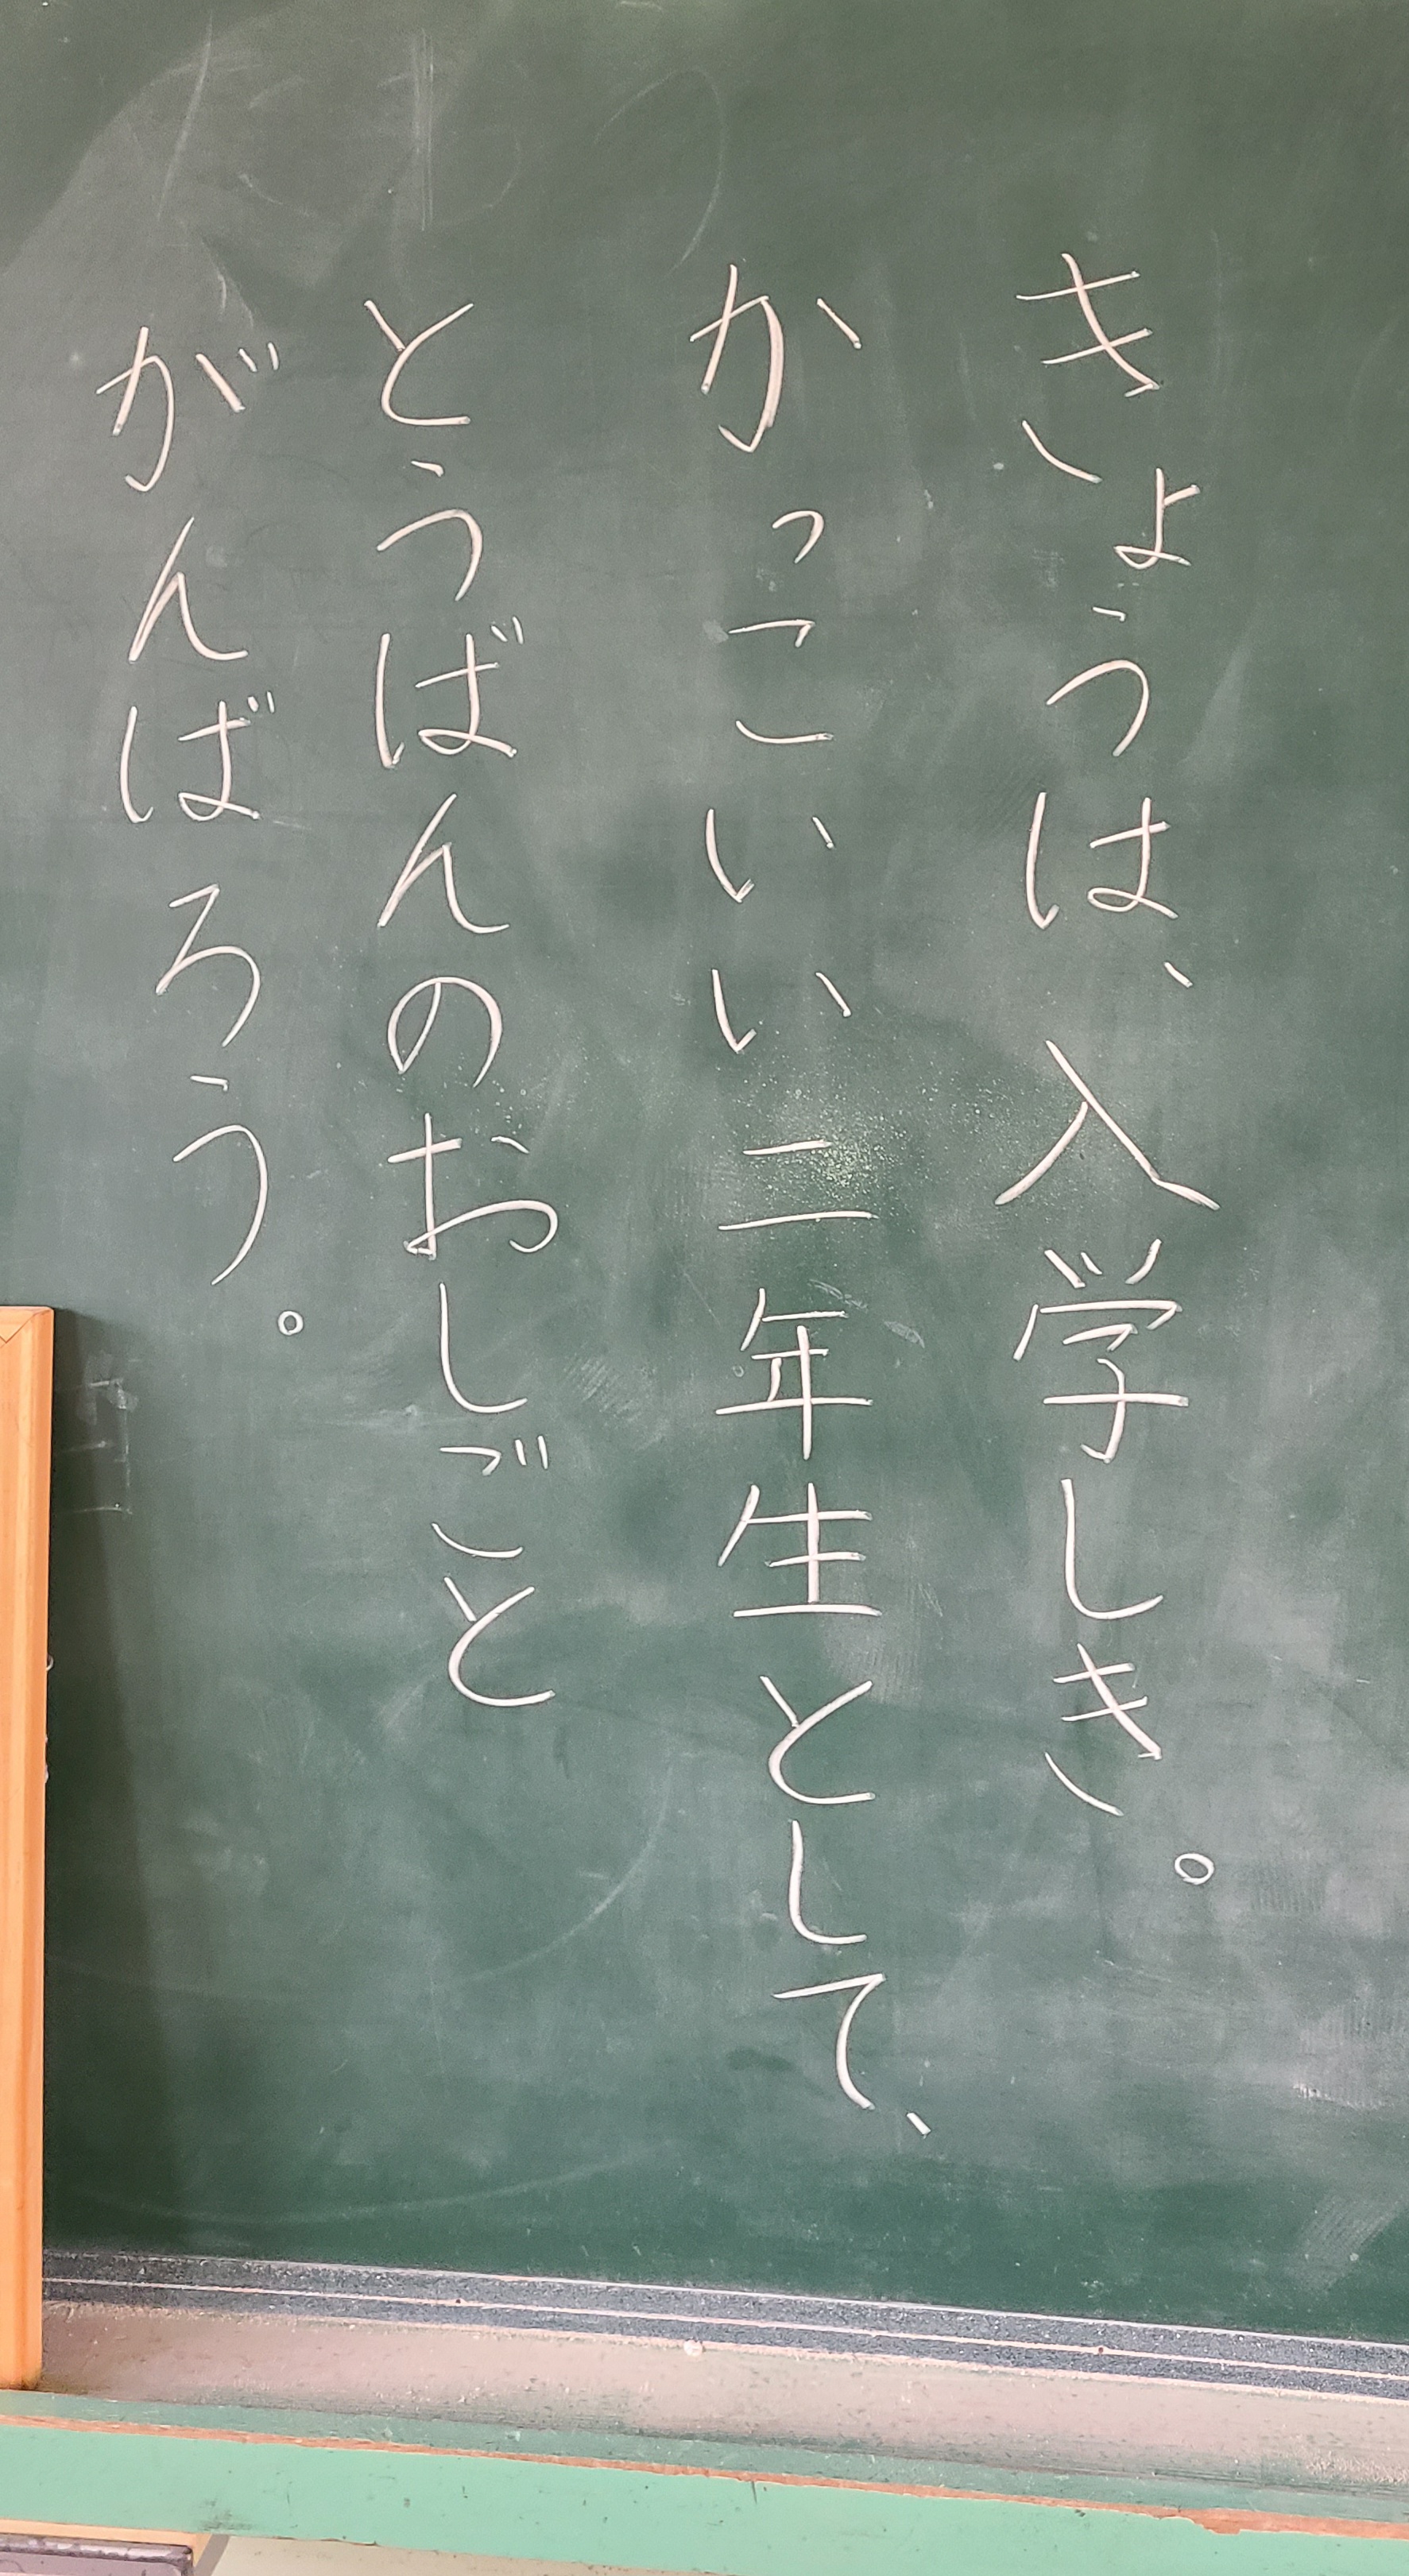 きょうは、入学しき。
かっこいい二年生として、
とうばんのおしごと
がんばろう。